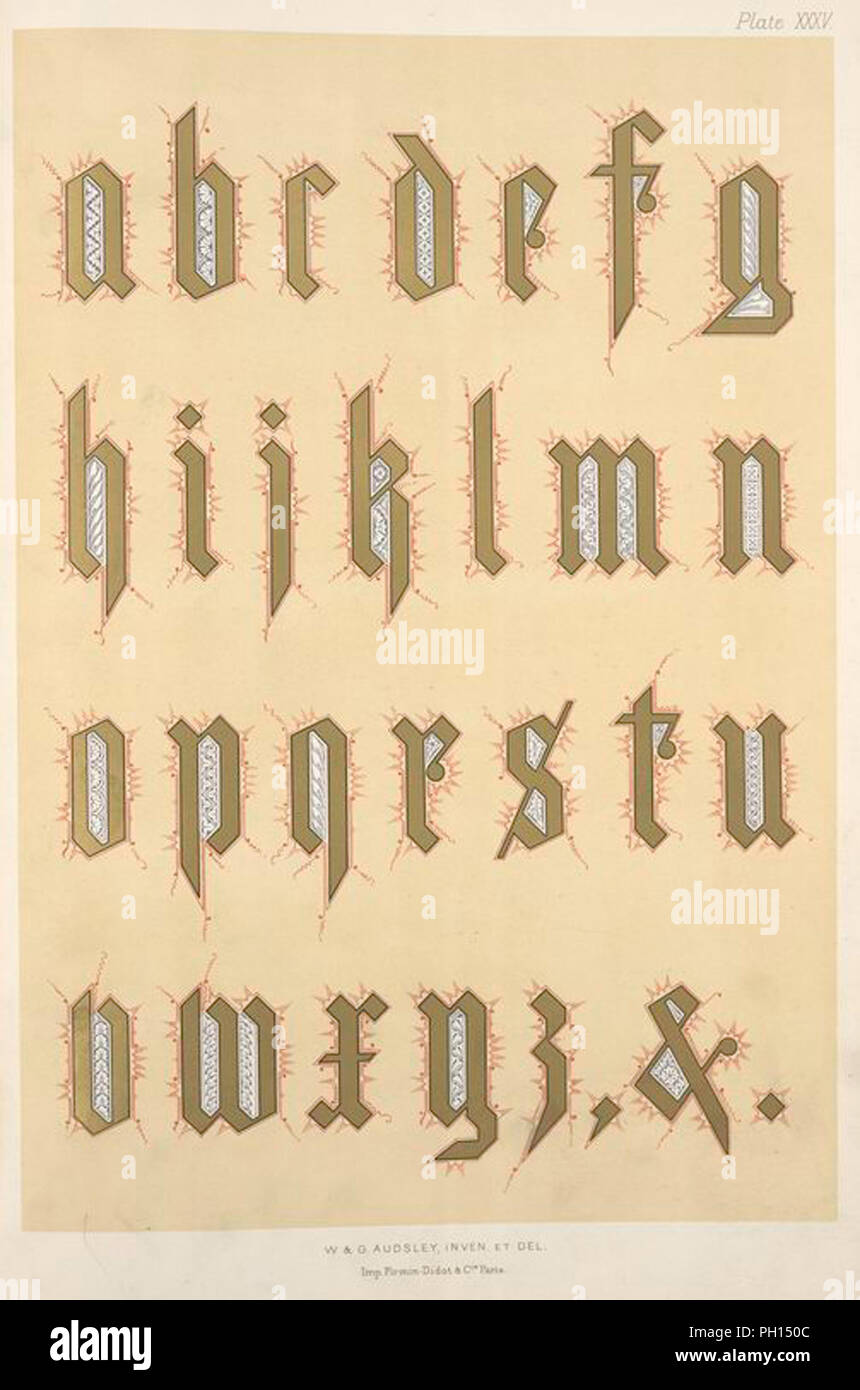 Plate XXXV.
a b c d e f g
h i j k l m n
o p q r s t u
v w x y z , & .
W & G AUDSLEY, INVEN. ET DEL.
Imp. Firmin-Didot & Cie Paris.
alamy
alamy
Image ID: PH150C
www.alamy.com